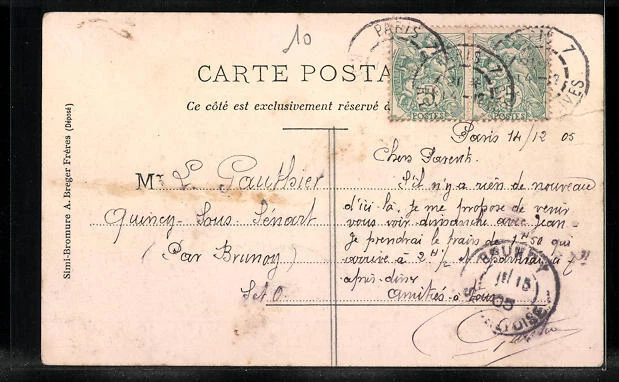 10
CARTE POSTA
Ce côté est exclusivement réservé à
Simi-Bromure A. Breger Frères (Déposé)
PARIS
POSTES
POSTES
Paris 14/12 05
Chers Parents.
Mr L. Gauthier
Quincy-Sous-Sénart
(Par Brunoy)
S et O.
S'il n'y a rien de nouveau
d'ici là, je me propose de venir
vous voir dimanche avec Jean
Je prendrai le train de 1H50 qui
arrive à 2H1/2 et repartirai à 7
après-dîner
Amitiés à tous
BRUNOY
15
05
OISE